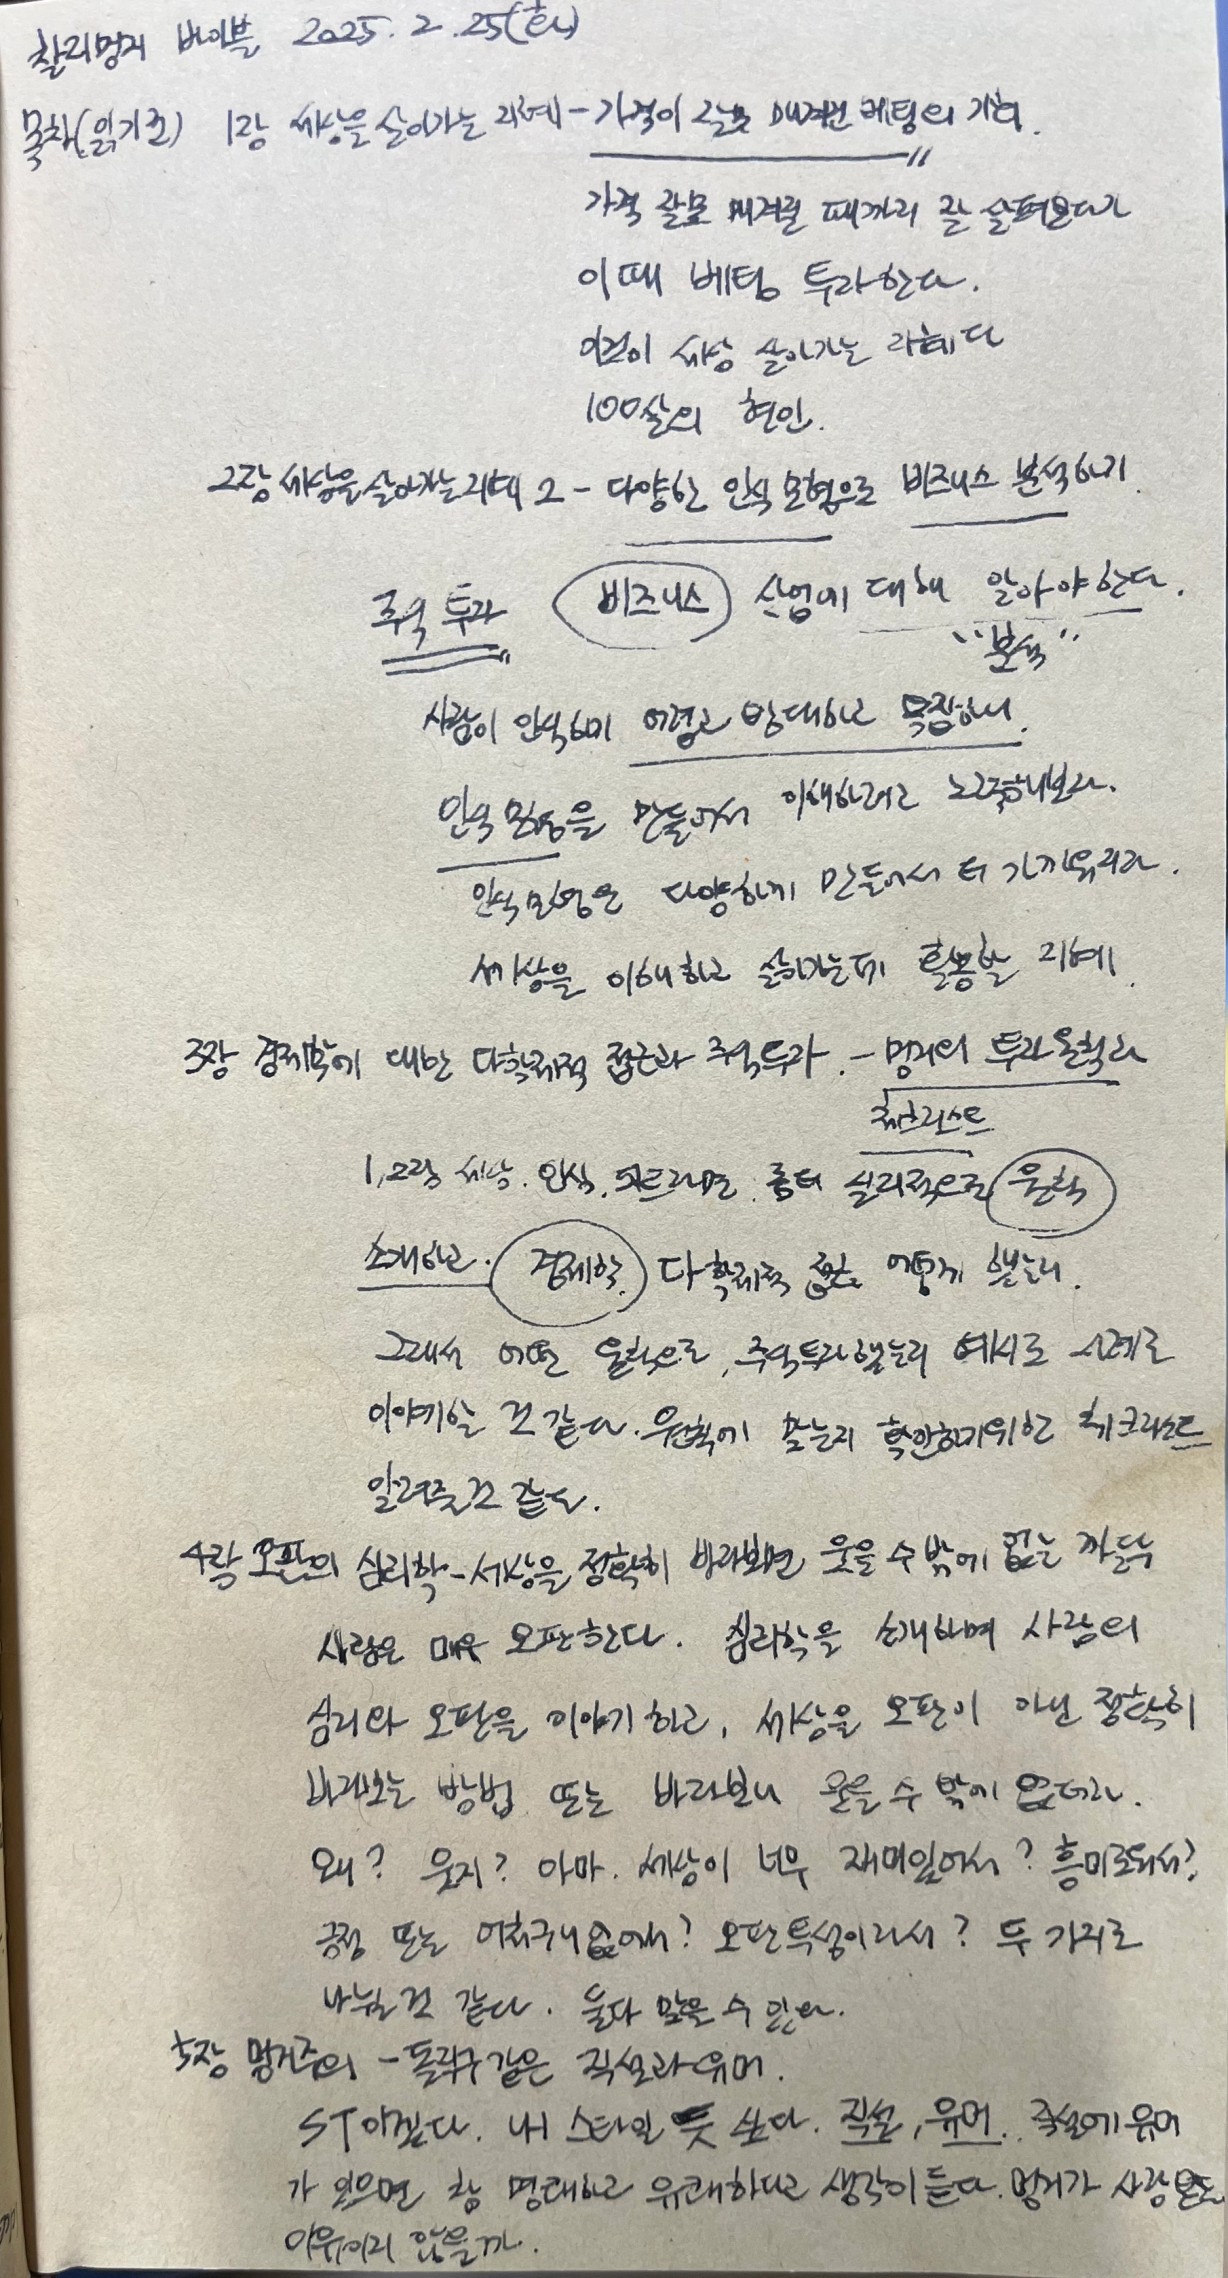 찰리멍거 바이블 2025. 2. 25(화)
목차(읽기전) 1장 세상을 살아가는 지혜 - 가격이 잘못 매겨진 베팅의 기회.
가격 잘못 매겨질 때까지 잘 살펴보다가
이때 베팅 투자한다.
이것이 세상 살아가는 지혜다
100살의 현인.
2장 세상을 살아가는 지혜 2 - 다양한 인식 모형으로 비즈니스 분석하기.
주식 투자 비즈니스 산업에 대해 알아야 한다.
"분석"
사람이 인식하기 어렵고 방대하고 복잡하니.
인식 모형을 만들어서 이해하려고 노력해보라.
인식모형은 다양하게 만들어서 더 가까워지라.
세상을 이해하고 살아가는데 활용할 지혜.
3장 경제학에 대한 다학제적 접근과 주식투자. - 멍거의 투자 원칙과
체크리스트
1, 2장 세상. 인식. 3장 실리적으로 원칙
소개하고. 경제학. 다학제적 접근 어떻게 했는지.
그래서 어떤 원칙으로, 주식투자했는지 예시로 사례로
이야기할 것 같다. 원칙에 맞는지 확인하기위한 체크리스트
알려줄 것 같다.
4장 오판의 심리학 - 세상을 정확히 바라보면 웃을 수 밖에 없는 까닭
사람은 매우 오판한다. 심리학을 소개하며 사람의
심리와 오판을 이야기 하고, 세상을 오판이 아닌 정확히
바라보는 방법 또는 바라보니 웃을 수 밖에 없더라.
왜? 웃지? 아마. 세상이 너무 재미있어서? 흥미로워서?
긍정 또는 어처구니 없어서? 오판투성이라서? 두 가지로
나뉠 것 같다. 둘다 맞을 수 있다.
5장 멍거주의 - 돌직구 같은 직설과 유머.
ST이겠다. 내 스타일 듯 싶다. 직설, 유머. 직설에 유머
가 있으면 참 명쾌하고 유쾌하다고 생각이 든다. 멍거가 사랑받는
이유이지 않을까.